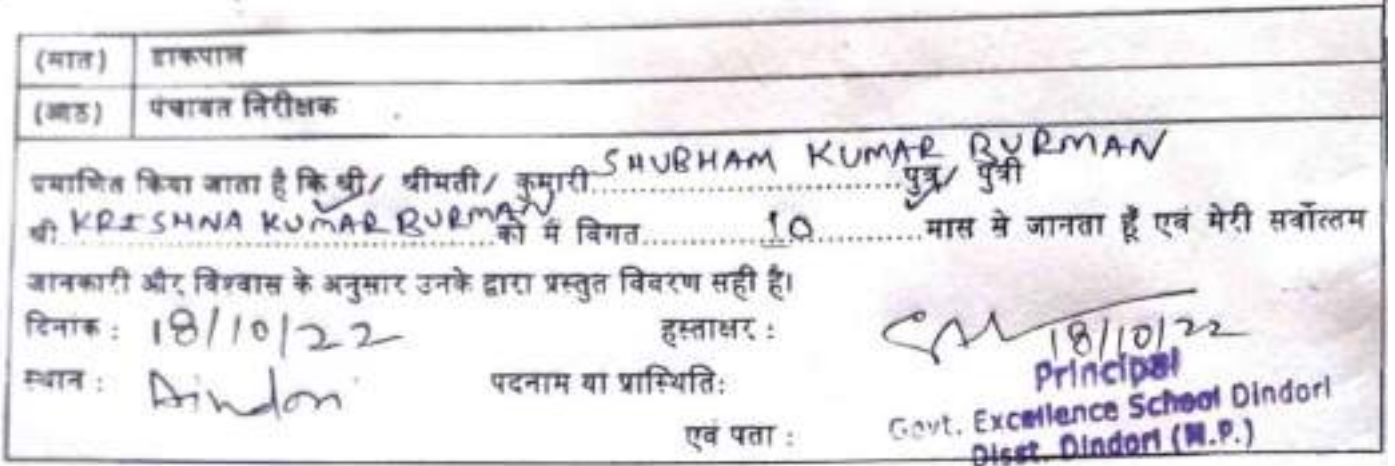 (सात) डाकपाल
(आठ) पंचायत निरीक्षक
प्रमाणित किया जाता है कि श्री/ श्रीमती/ कुमारी SHUBHAM KUMAR BURMAN पुत्र/ पुत्री
श्री KRISHNA KUMAR BURMAN को मैं विगत 10 मास से जानता हूँ एवं मेरी सर्वोत्तम
जानकारी और विश्वास के अनुसार उनके द्वारा प्रस्तुत विवरण सही है।
दिनांक : 18/10/22 हस्ताक्षर : 18/10/22
स्थान : Dindori पदनाम या प्रास्थिति: Principal
एवं पता : Govt. Excellence School Dindori
Disst. Dindori (M.P.)